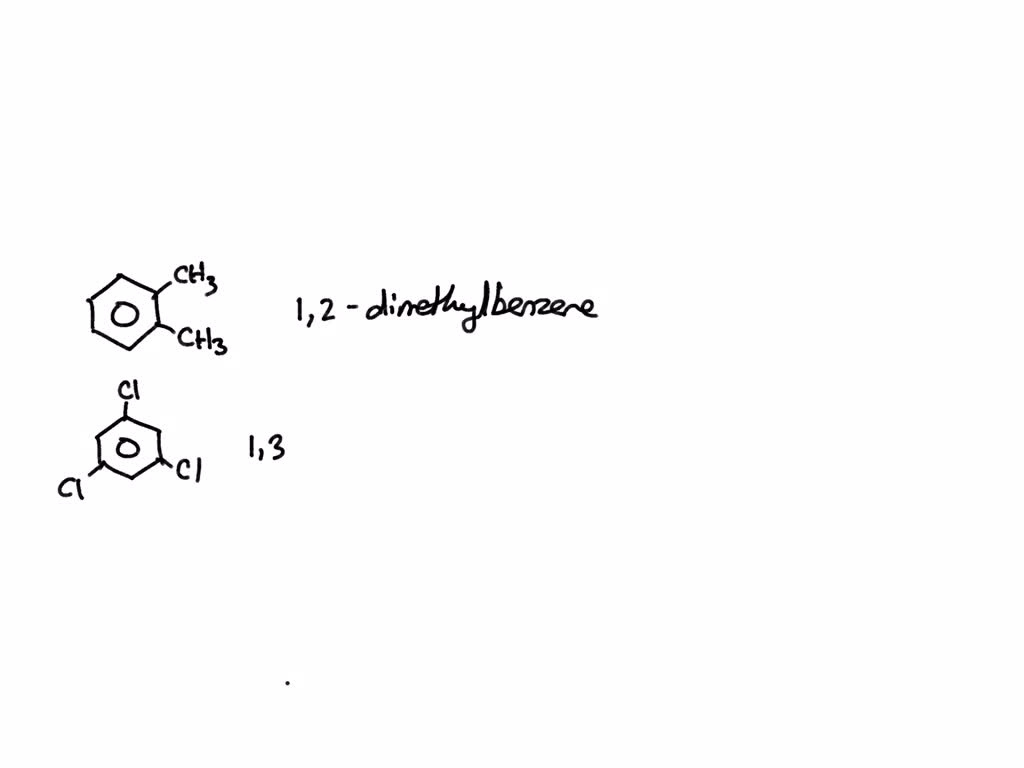 CH3
1,2-dimethylbenzene
CH3
Cl
1,3
Cl
Cl